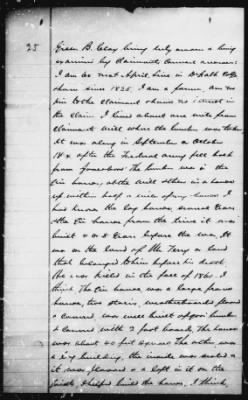 25
Green B. Clay being duly sworn & being
examined by Claimants Counsel answers:
I am 60 next April, live in DeKalb Co Ga
there since 1825. I am a farmer, am no
kin to the Claimant & have no interest in
the claim. I lived about one mile from
Claimants Mill where the lumber was taken
It was along in September or October
1864 after the Federal army fell back
from Jonesboro. The lumber was in the
Gin house, at the Mill & then in a house
up within half a mile of my house I
had known the log house several years
& the Gin house from the time it was
built 4 or 5 years before the war. It
was on the land of Mr. Terry or land
that belonged to him before his death
He was killed in the fall of 1860. I
think. The Gin house was a large frame
house, two stories, weatherboarded &
& covered, was well built of good lumber
& covered with 2 foot boards. The house
was about 40 feet square. The other was
a log building, the inside was sealed &
it was floored & a loft in it on the
inside. I helped build the house, I think,